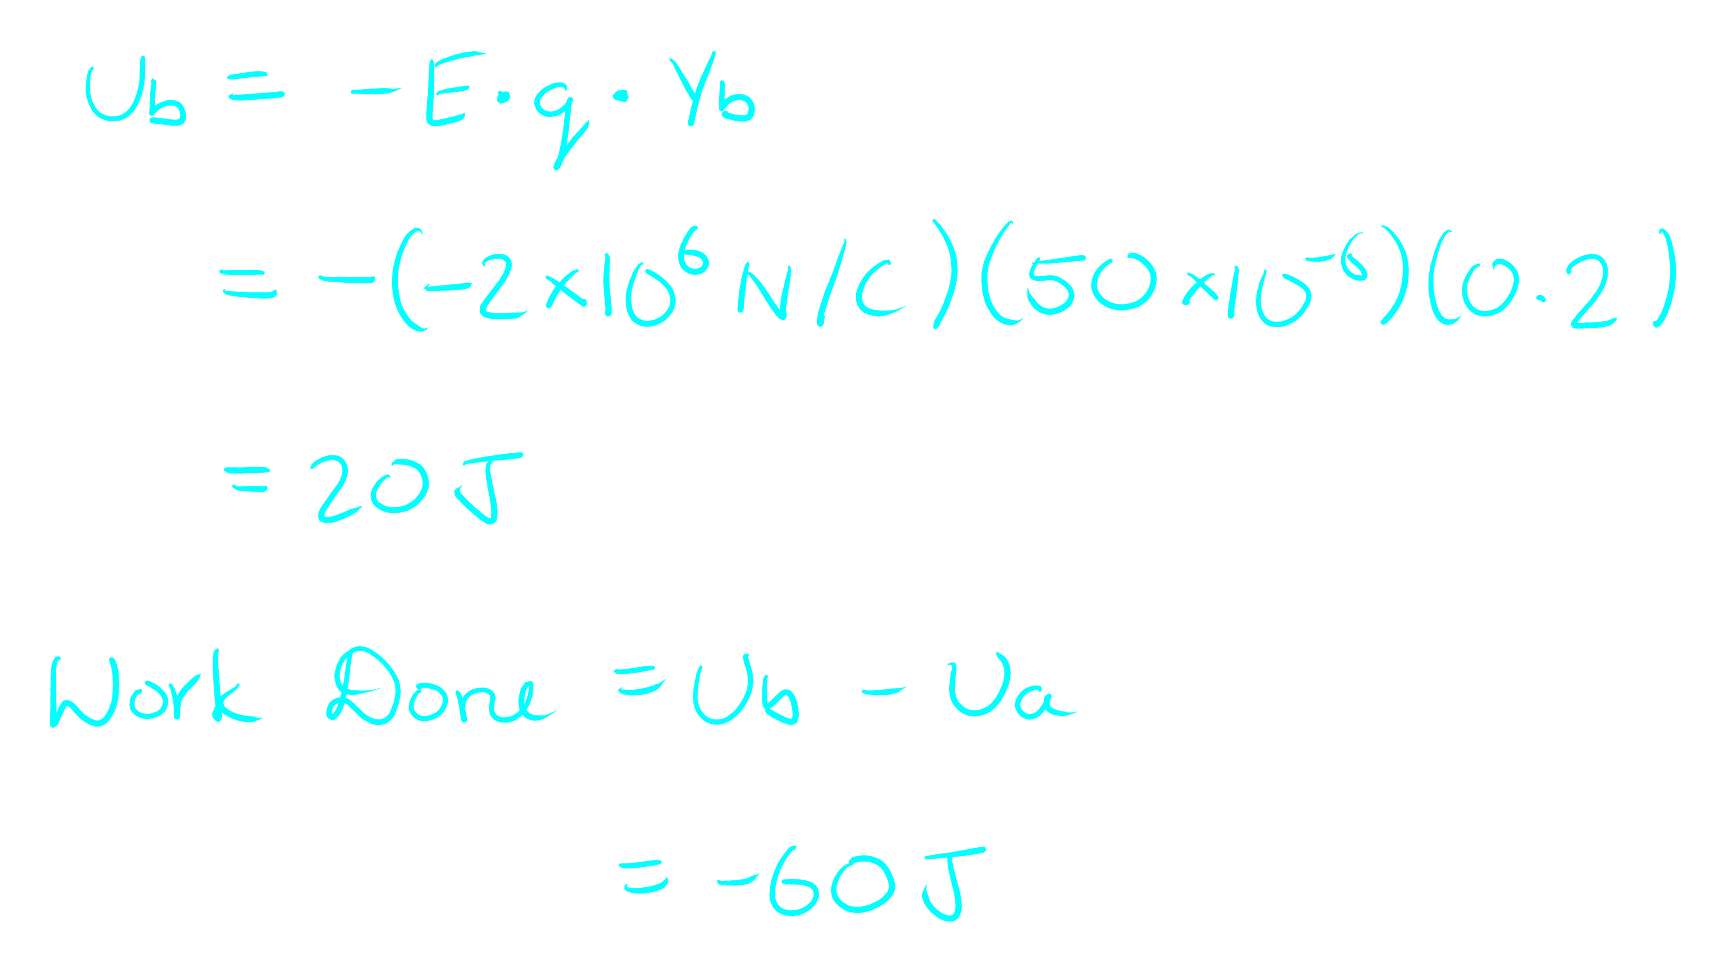 Ub = -E·q·Yb
= -(-2×10⁶ N/C)(50×10⁻⁶)(0.2)
= 20 J
Work Done = Ub - Ua
= -60 J